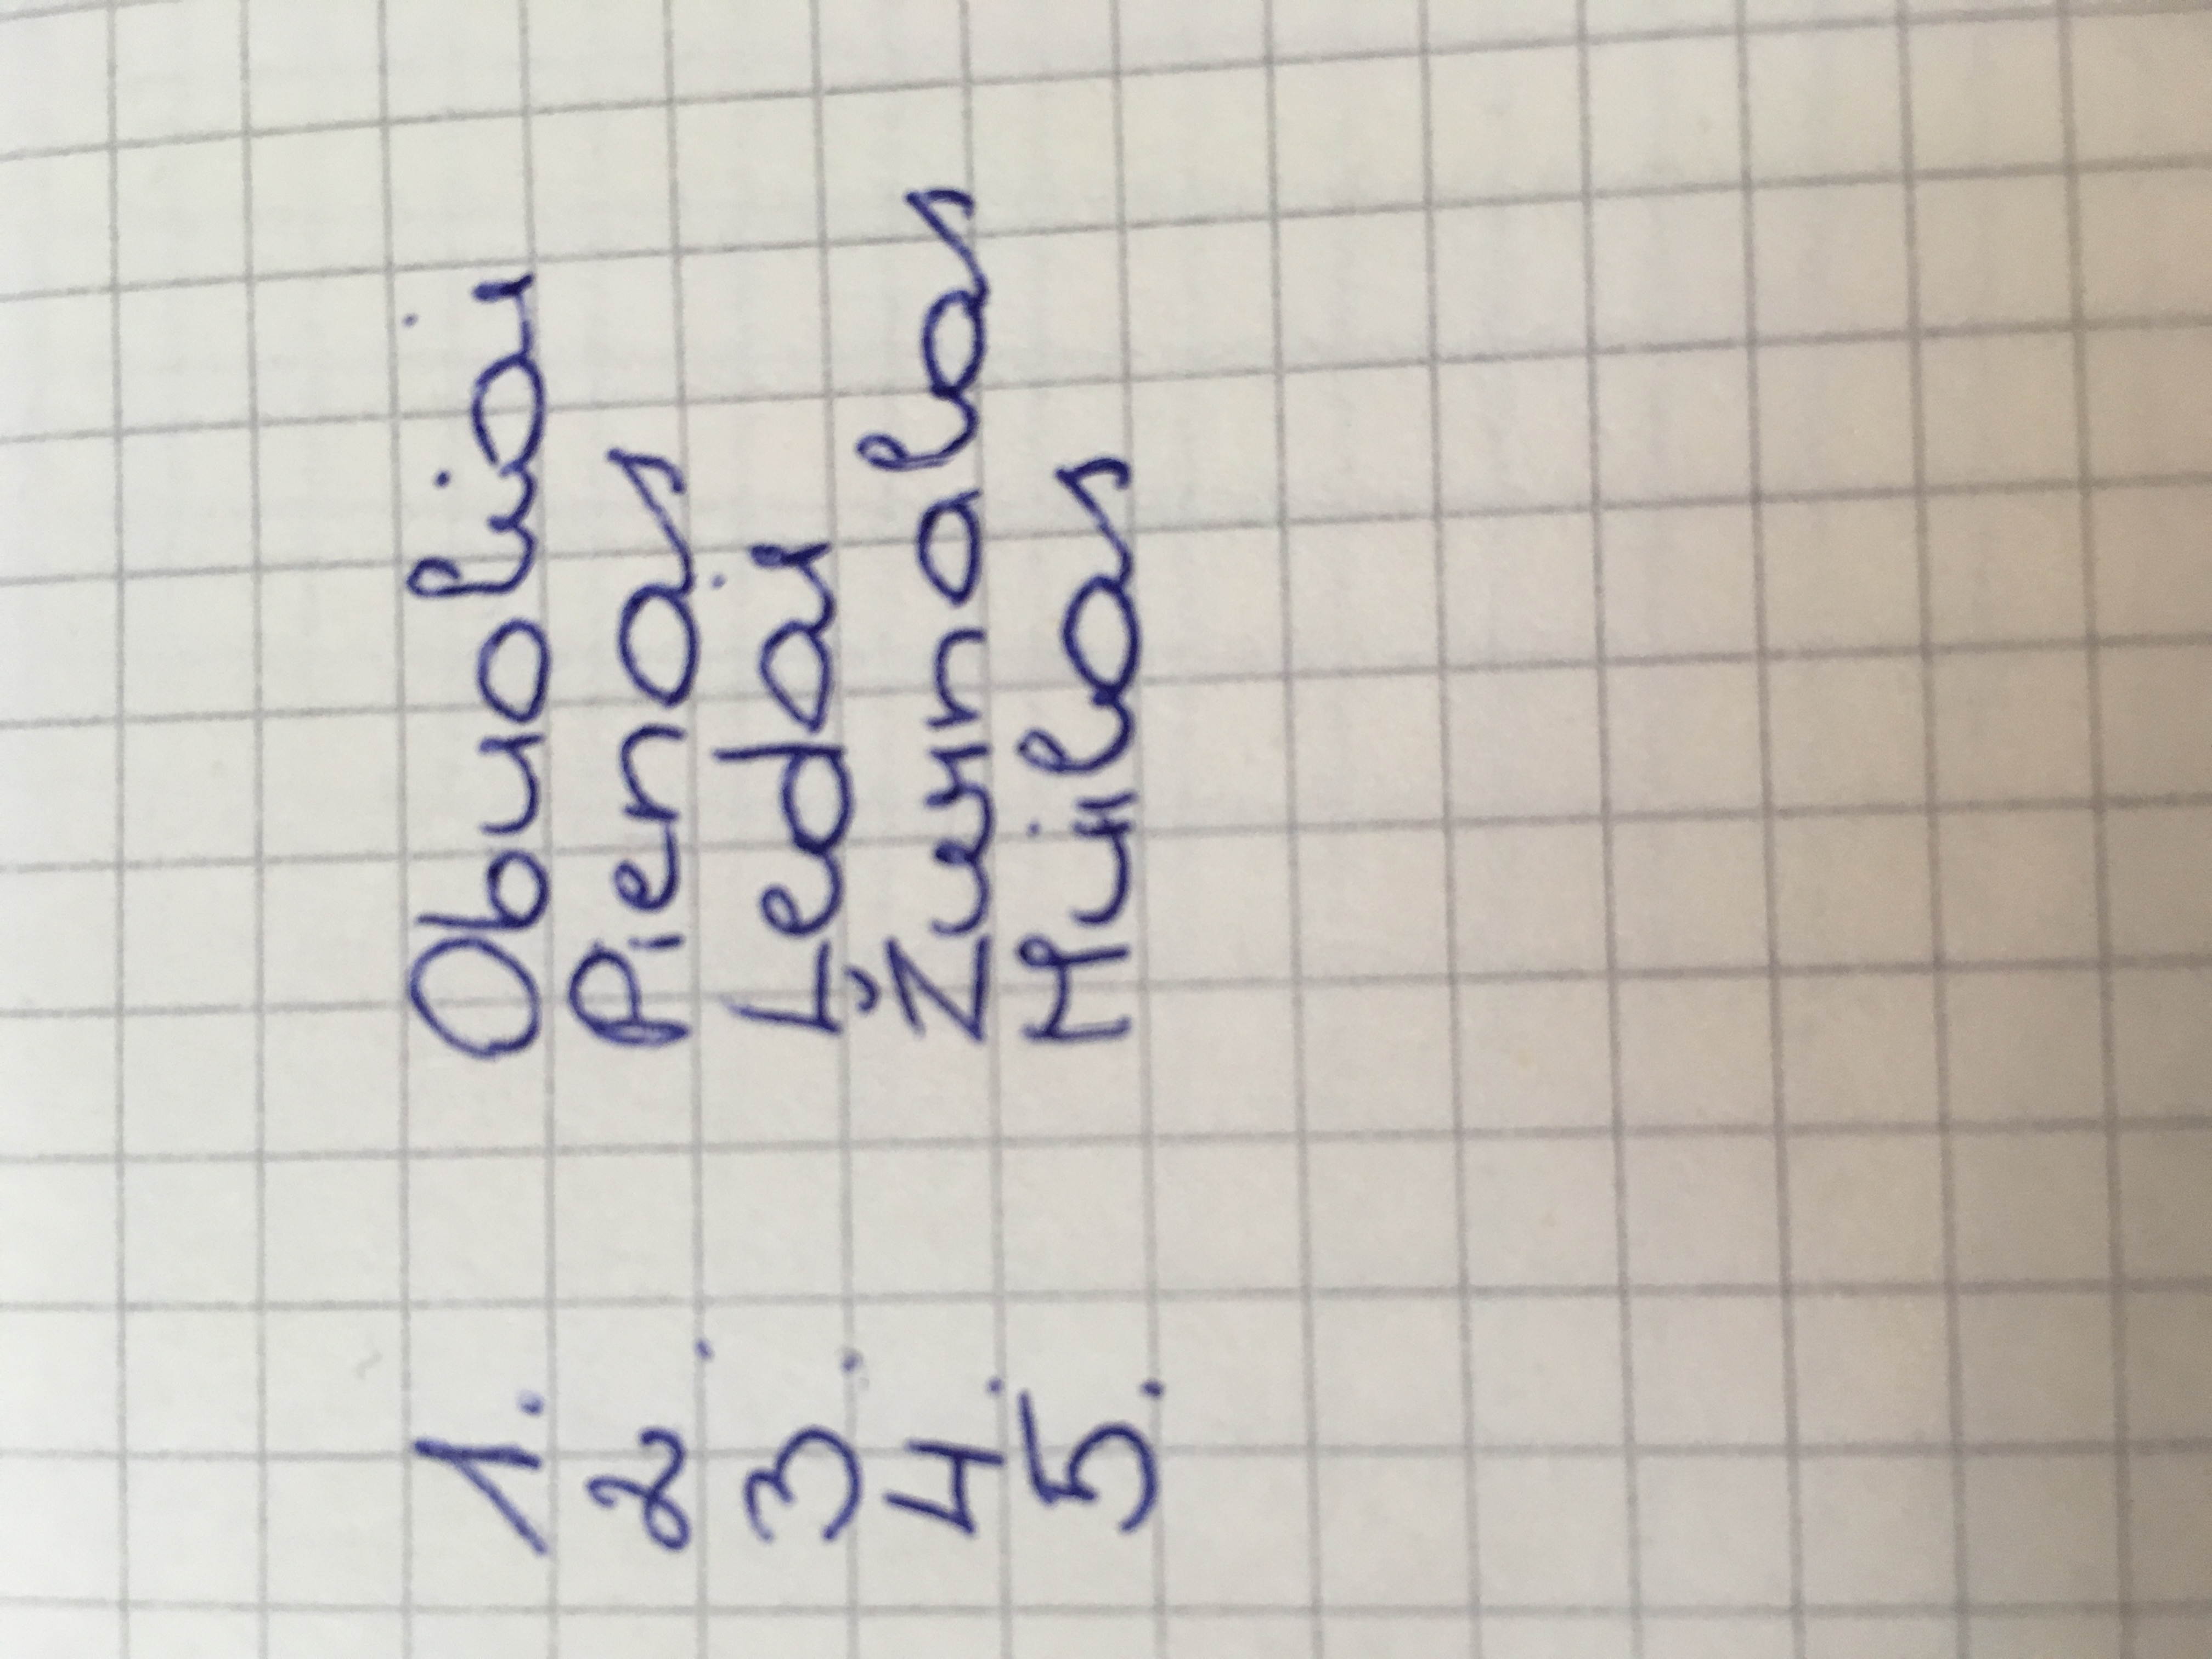 1. Obuoliai
2. Pienas
3. Ledai
4. Žurnalas
5. Muilas